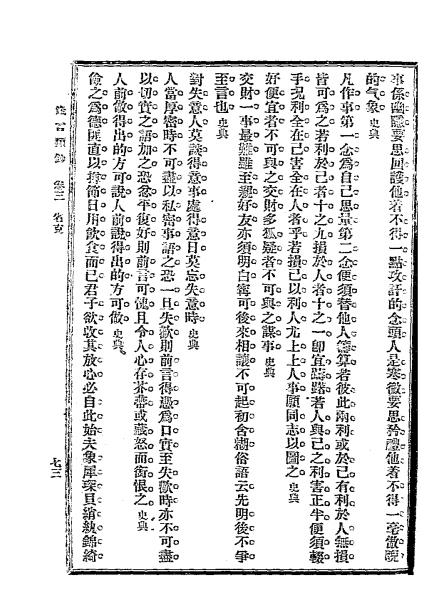 事係幽隱要思回護他若不得一點攻訐的念頭人是寒微要思矜禮他若不得一毫傲睨
的气象 史典
凡作事第一念爲自己思量第二念便須替他人籌算若彼此兩利或於己有利於人無損
皆可爲之若利於己者十之九損於人者十之一卽宜躊躇若人與己之利害正半便須輟
手况利全在己害全在人者乎若損己以利人尤上上人事願同志以圖之 史典
好便宜者不可與之交財多狐疑者不可與之謀事 史典
交財一事最難雖至親好友亦須明白寧可後來相讓不可起初含糊俗語云先明後不爭
至言也 史典
對失意人莫談得意事處得意日莫忘失意時 史典
人當厚密時不可盡以私密事語之恐一旦失歡則前言得憑爲口實至失歡時亦不可盡
以切實之語加之恐忿平復好則前言可愧且令人心存芥蒂或蘊怒而銜恨之 史典
人前做得出的方可說人前說得出的方可做 史典
儉之爲德匪直以撙節日用飲食而已君子欲收其放心必自此始夫象犀琛貝綃紈錦綺
言類鈔 卷三 省克
七三